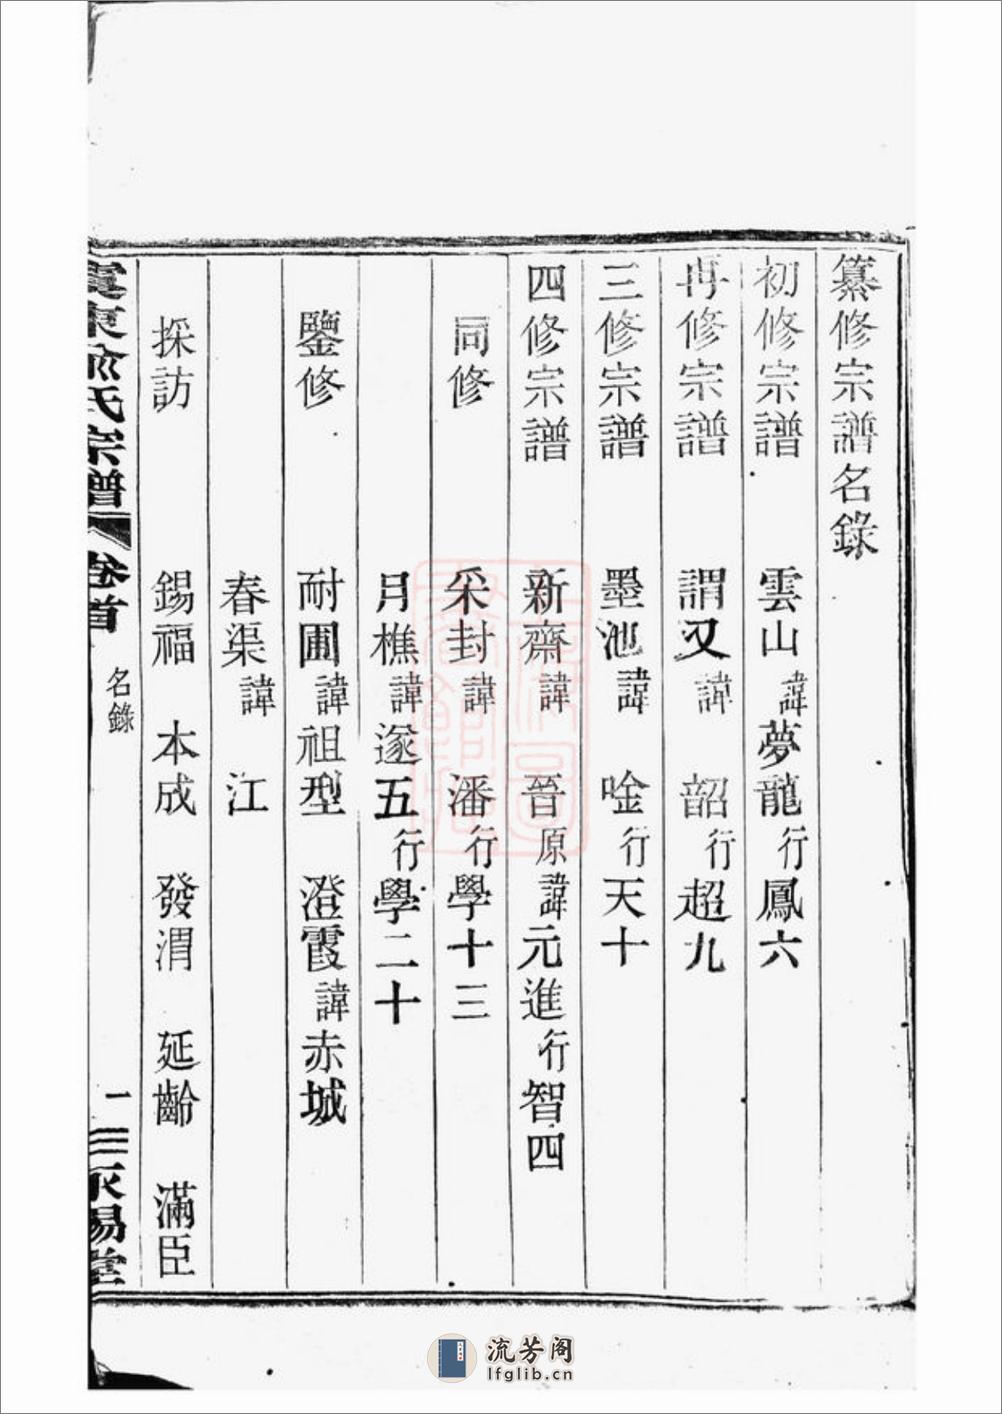 纂修宗譜名錄
初修宗譜 雲山諱夢龍行鳳六
再修宗譜 謂又諱 韶行超九
三修宗譜 墨池諱 唫行天十
四修宗譜 新齋諱 晉原諱元進行智四
同修 采封諱 潘行學十三
月樵諱邃五行學二十
鑒修 耐圃諱祖型 澄霞諱赤城
春渠諱 江
採訪 錫福 本成 發渭 延齡 滿臣
虞東俞氏宗譜 卷首 名錄 一 永錫堂
流芳阁
lfglib.cn